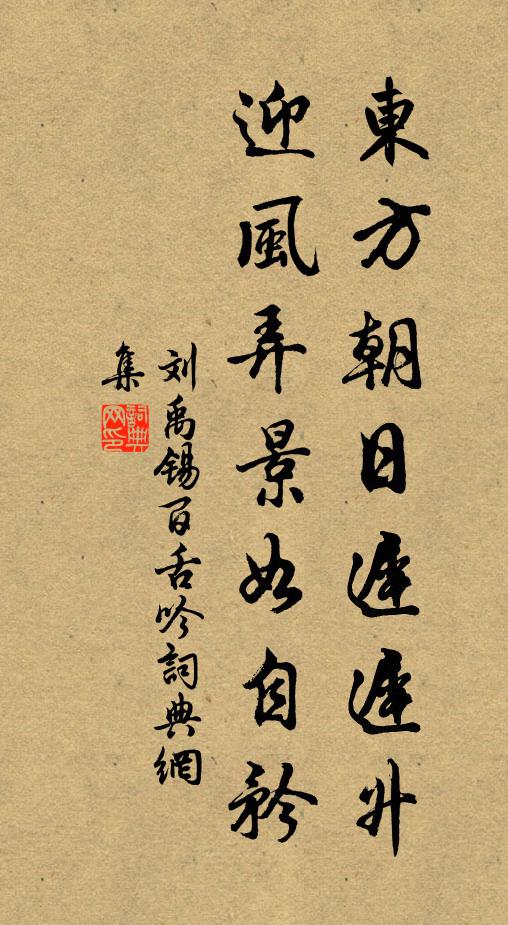 東方朝日遲遲升
迎風弄景如自矜
刘禹锡百舌吟詞典網
集
詞典网印